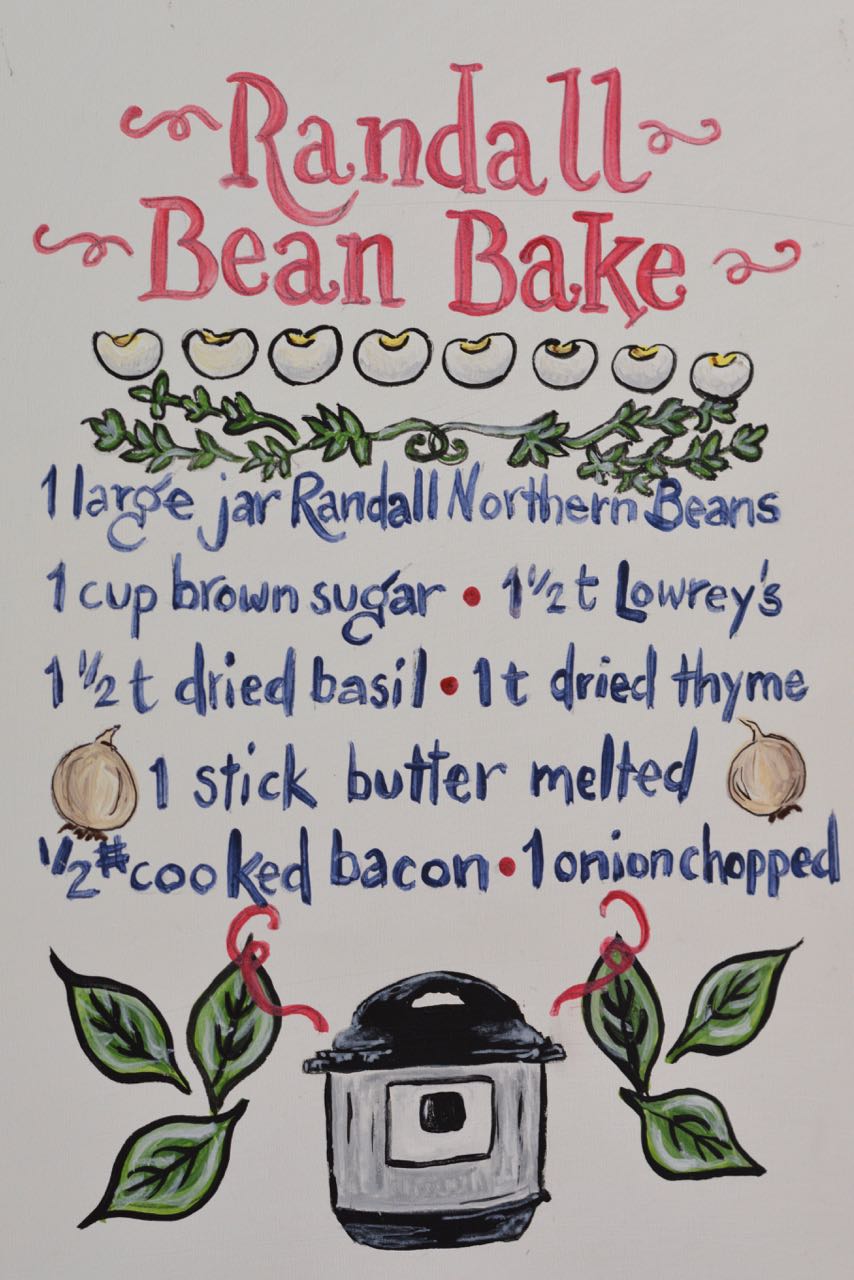 Randall
Bean Bake
1 large jar Randall Northern Beans
1 cup brown sugar • 1 1/2 t Lowrey's
1 1/2 t dried basil • 1 t dried thyme
1 stick butter melted
1/2 # cooked bacon • 1 onion chopped